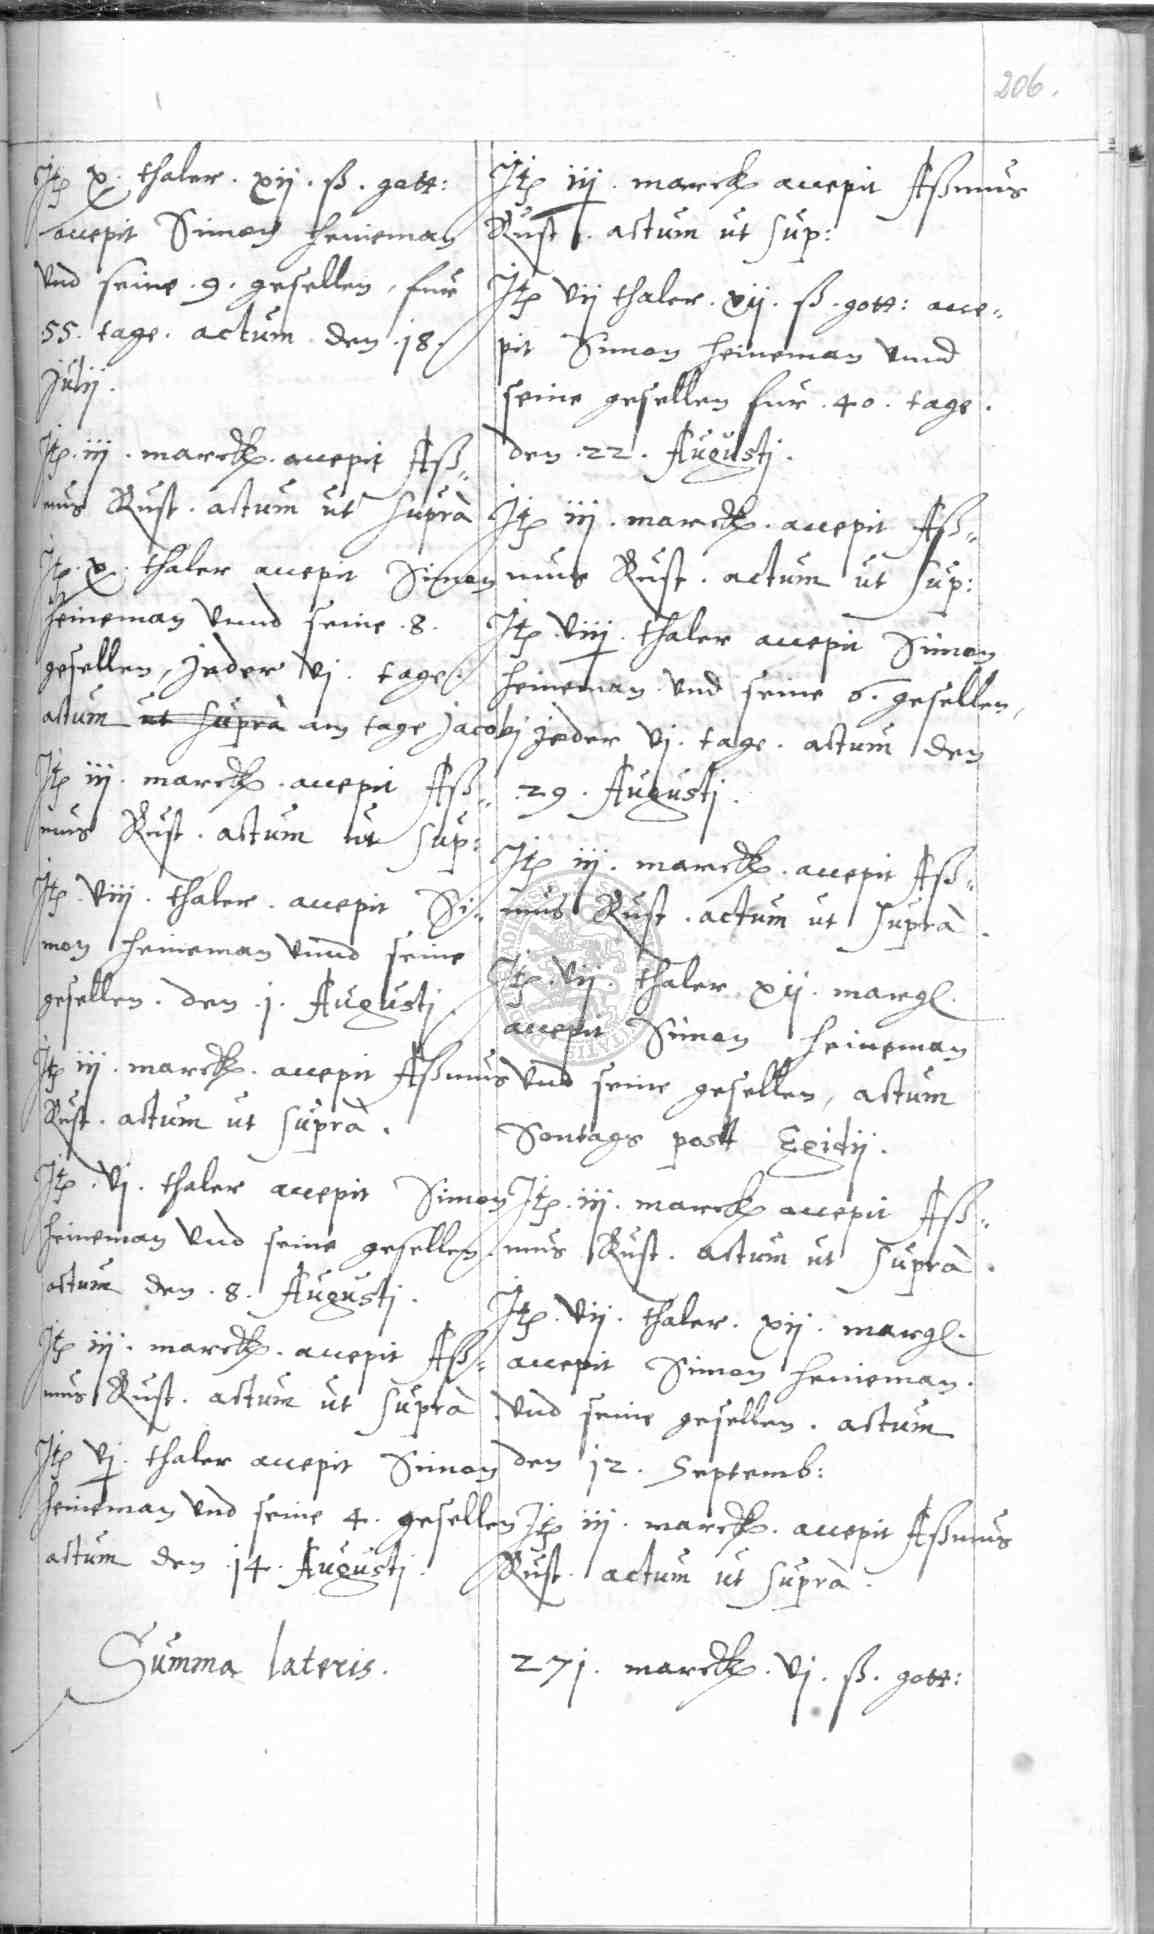 206.
Itē x. thaler. xij. ß. gott:
accepit Simon heineman
vnd seine .9. gesellen, fur
55. tage. actum den .18.
Julij.
Itē. iij. marck. accepit Aß„
mus Rust. actum ut suprà
Itē. x. thaler accepit Simon
heineman vnnd seine .8.
gesellen, jeder vj. tage.
actum ut suprà am tage Jacobj
Itē iij. marck. accepit Aß„
mus Rust. actum ut sup:
Itē. viij. thaler. accepit Si„
mon heineman vnnd seine
gesellen. den .1. Augustj.
Itē iij. marck. accepit Aßmus
Rust. actum ut suprà.
Itē. vj. thaler accepit Simon
heineman vnd seine gesellen.
actum den .8. Augustj.
Itē iij. marck. accepit Aß„
mus Rust. actum ut suprà
Itē vj. thaler accepit Simon
heineman vnd seine 4. gesellen
actum den .14. Augustj.
Itē iij. marck accepit Aßmus
Rust. actum ut sup:
Itē vij thaler. xij. ß. gott: acce„
pit Simon heineman vnnd
seine gesellen fur .40. tage.
den .22. Augustj.
Itē iij. marck. accepit Aß„
mus Rust. actum ut sup:
Itē. viij. thaler accepit Simon
heineman vnd seine 6. gesellen,
jeder vj. tage. actum den
.29. Augustj.
Itē iij. marck. accepit Aß„
mus Rust. actum ut suprà.
Itē. vij. thaler xij. margl.
accepit Simon heineman
vnd seine gesellen, actum
Sontags post Egidij.
Itē. iij. marck accepit Aß„
mus Rust. actum ut suprà.
Itē. vij. thaler. xij. margl.
accepit Simon heineman.
vnd seine gesellen. actum
den 12. Septemb:
Itē iij. marck. accepit Aßmus
Rust. actum ut suprà.
Summa lateris. 271. marck. vj. ß. gott: